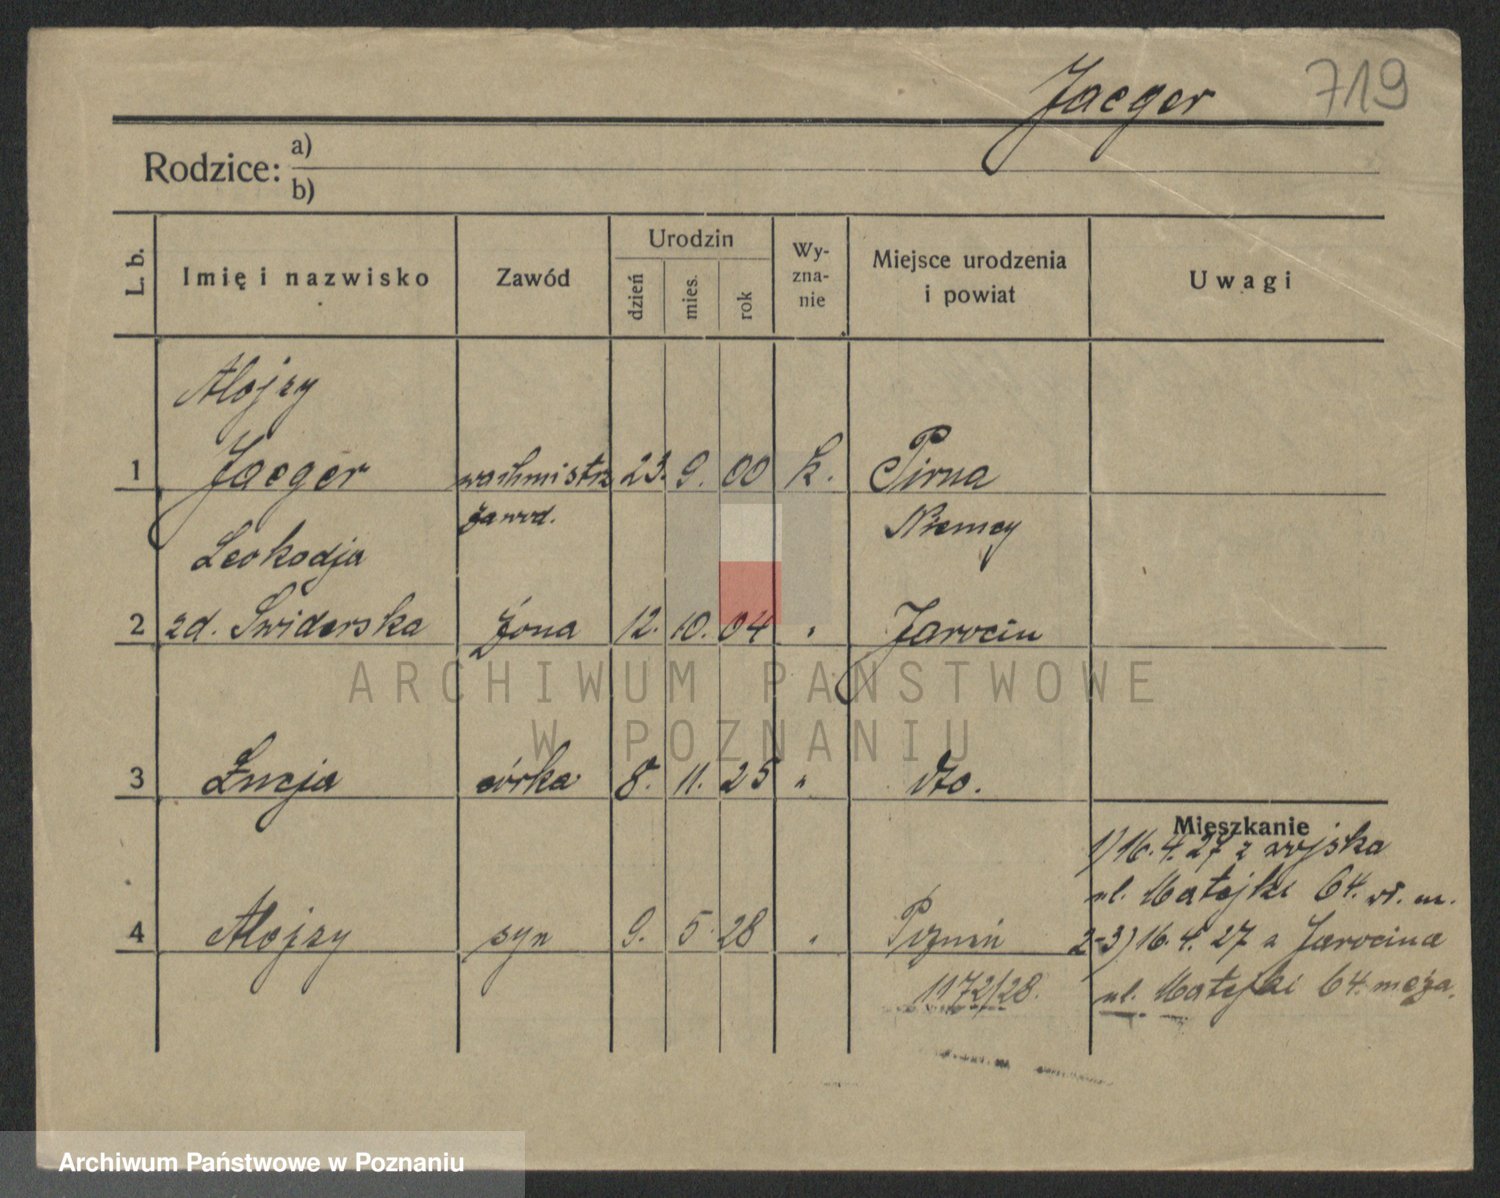 Jaeger 719
Rodzice: a)
b)
L. b. Imię i nazwisko Zawód Urodzin dzień mies. rok Wy-zna-nie Miejsce urodzenia i powiat Uwagi
Alojzy
1 Jaeger wachmistrz 23. 9. 00 k. Pirna
zawod. Niemcy
Leokadja
2 zd. Świderska żona 12. 10. 04 " Jarocin
ARCHIWUM PAŃSTWOWE
W POZNANIU
3 Łucja córka 8. 11. 25 " dto.
Mieszkanie
1) 16. 4. 27 z wojska
ul. Matejki 64. wł. m.
4 Alojzy syn 9. 5. 28 " Poznań
2-3) 16. 4. 27 z Jarocina
1172/28.
ul. Matejki 64. męża.
Archiwum Państwowe w Poznaniu